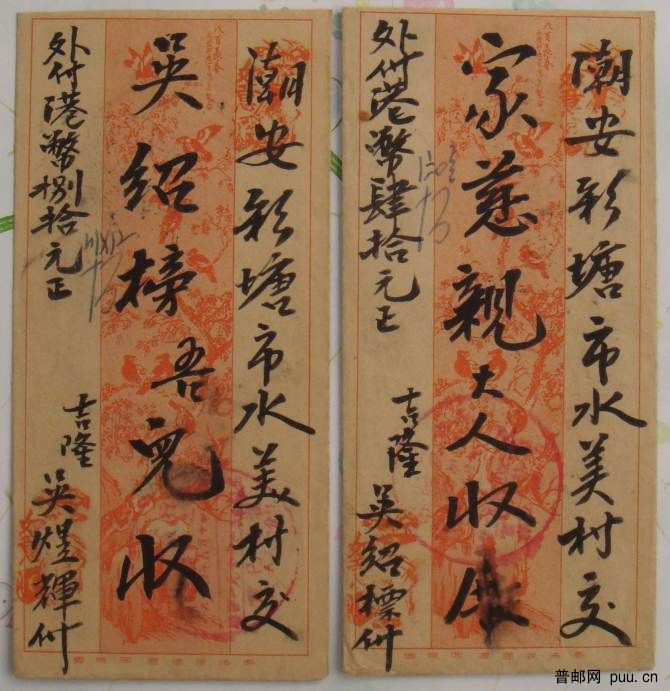 潮安彩塘市水美村交
吳紹榜吾兒收
外付港幣捌拾元正
吉隆 吳煌輝付
潮安彩塘市水美村交
家慈親大人收
外付港幣肆拾元正
吉隆 吳紹標付
普邮网 puu.cn